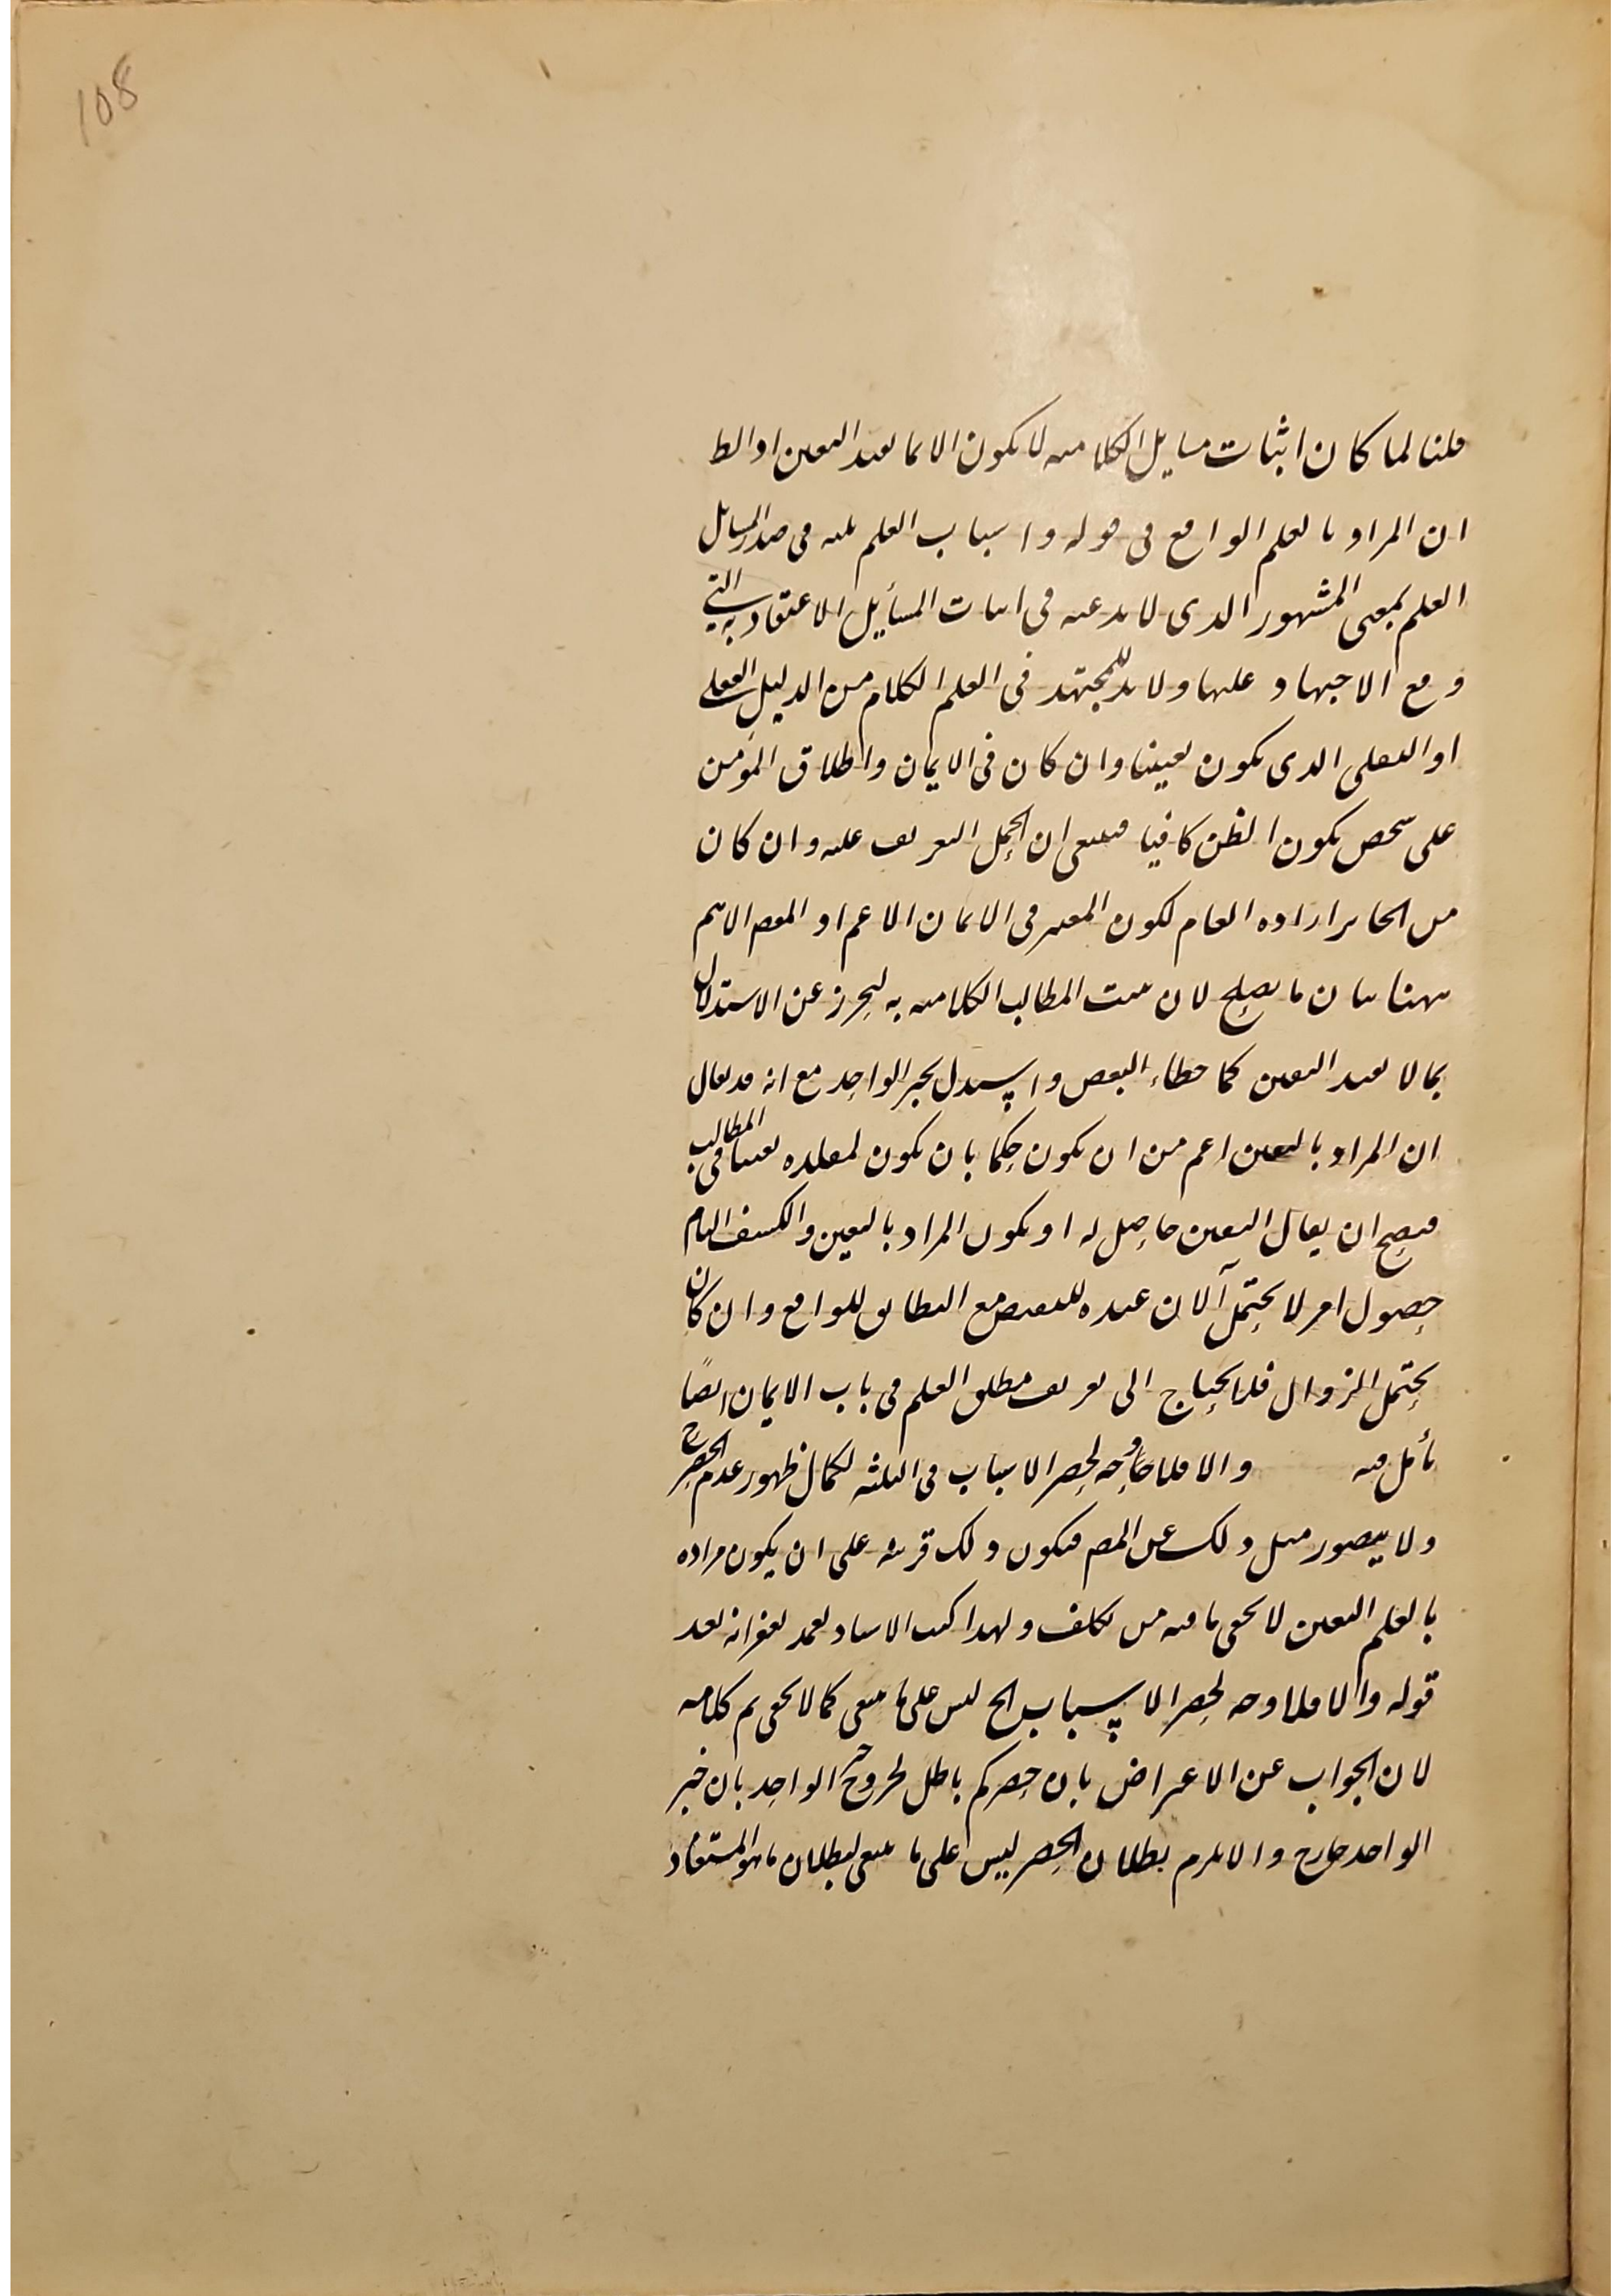 108
قلنا لما كان اثبات مسايل الكلامية لا يكون الا بما يفيد اليقين او الظ
ان المراد بالعلم الواقع فى قوله و اسباب العلم ثلثة فى صدر المسايل
العلم بمعنى المشهور الذى لا بد عنه فى اثبات المسأيل الاعتقادية التى
وقع الاجتهاد عليها ولا بد للمجتهد فى العلم الكلام من الدليل العقلى
او النقلى الذى يكون يقينيا وان كان فى الايمان واطلاق المؤمن
على شخص يكون الظن كافيا فينبغى ان يحمل التعريف عليه وان كان
من الجايز اراده العام لكون المعتبر فى الايمان الاعم او المقصم الاهم
ههنا بيان ما يصلح لان يثبت المطالب الكلامية به ليحرز عن الاستدلال
بما لا يفيد اليقين كما خطاء البعض واستدل بخبر الواحد مع انه قد يقال
ان المراد باليقين اعم من ان يكون حكما بان يكون لمقلده يقينا فى المطالب
فيصح ان يقال اليقين حاصل له او يكون المراد باليقين والكشف التام
حصول امر لا يحتمل آلان عنده للنقيض مع التطابق للواقع وان كان
يحتمل الزوال فلا يحتاج الى تعريف مطلق العلم فى باب الايمان ايضًا
تأمل فيه والا فلا وجه لحصر الاسباب فى الثلثة لكمال ظهور عدم الحصر ح
ولا يتصور مثل ذلك عن المصم فيكون ذلك قرينة على ان يكون مراده
بالعلم اليقين لا يخفى ما فيه من تكلف ولهذا كتب الاستاد تغمد بغفرانه بعد
قوله والا فلا وجه لحصر الاسباب الخ ليس على ما ينبغى كما لا يخفى تم كلامه
لان الجواب عن الاعتراض بان حصركم باطل لخروج خبر الواحد بان خبر
الواحد خارج والا يلزم بطلان الحصر ليس على ما ينبغى لبطلان ما هو المستفاد